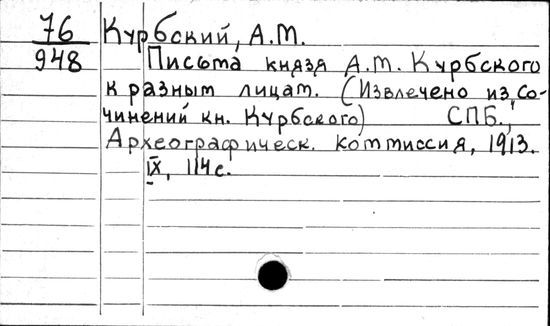 76 Курбский, А.М.
948 Письма князя А.М. Курбского
к разным лицам. (Извлечено из Со-
чинений кн. Курбского) СПБ.,
Археографическ. коммиссия, 1913.
IX, 114 с.